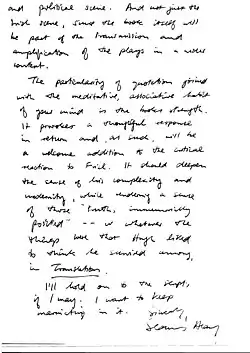 and political scene. And not just the
Irish scene, since the book itself will
be part of the transmission and
amplification of the plays in a wider
context.
The particularity of quotation joined
with the meditative, associative habit
of your mind is the book's strength.
It provokes a thoughtful response
in return and as such will be
a welcome addition to the critical
reaction to Friel. It should deepen
the sense of his complexity and
modernity, while rendering a sense
of those "truths, immemorially
posited" -- or whatever the
things were that Hugh liked
to think he survived among,
in Translations.
I'll hold on to the script,
if I may. I want to keep
in it.
Sincerely,
Seamus Heaney